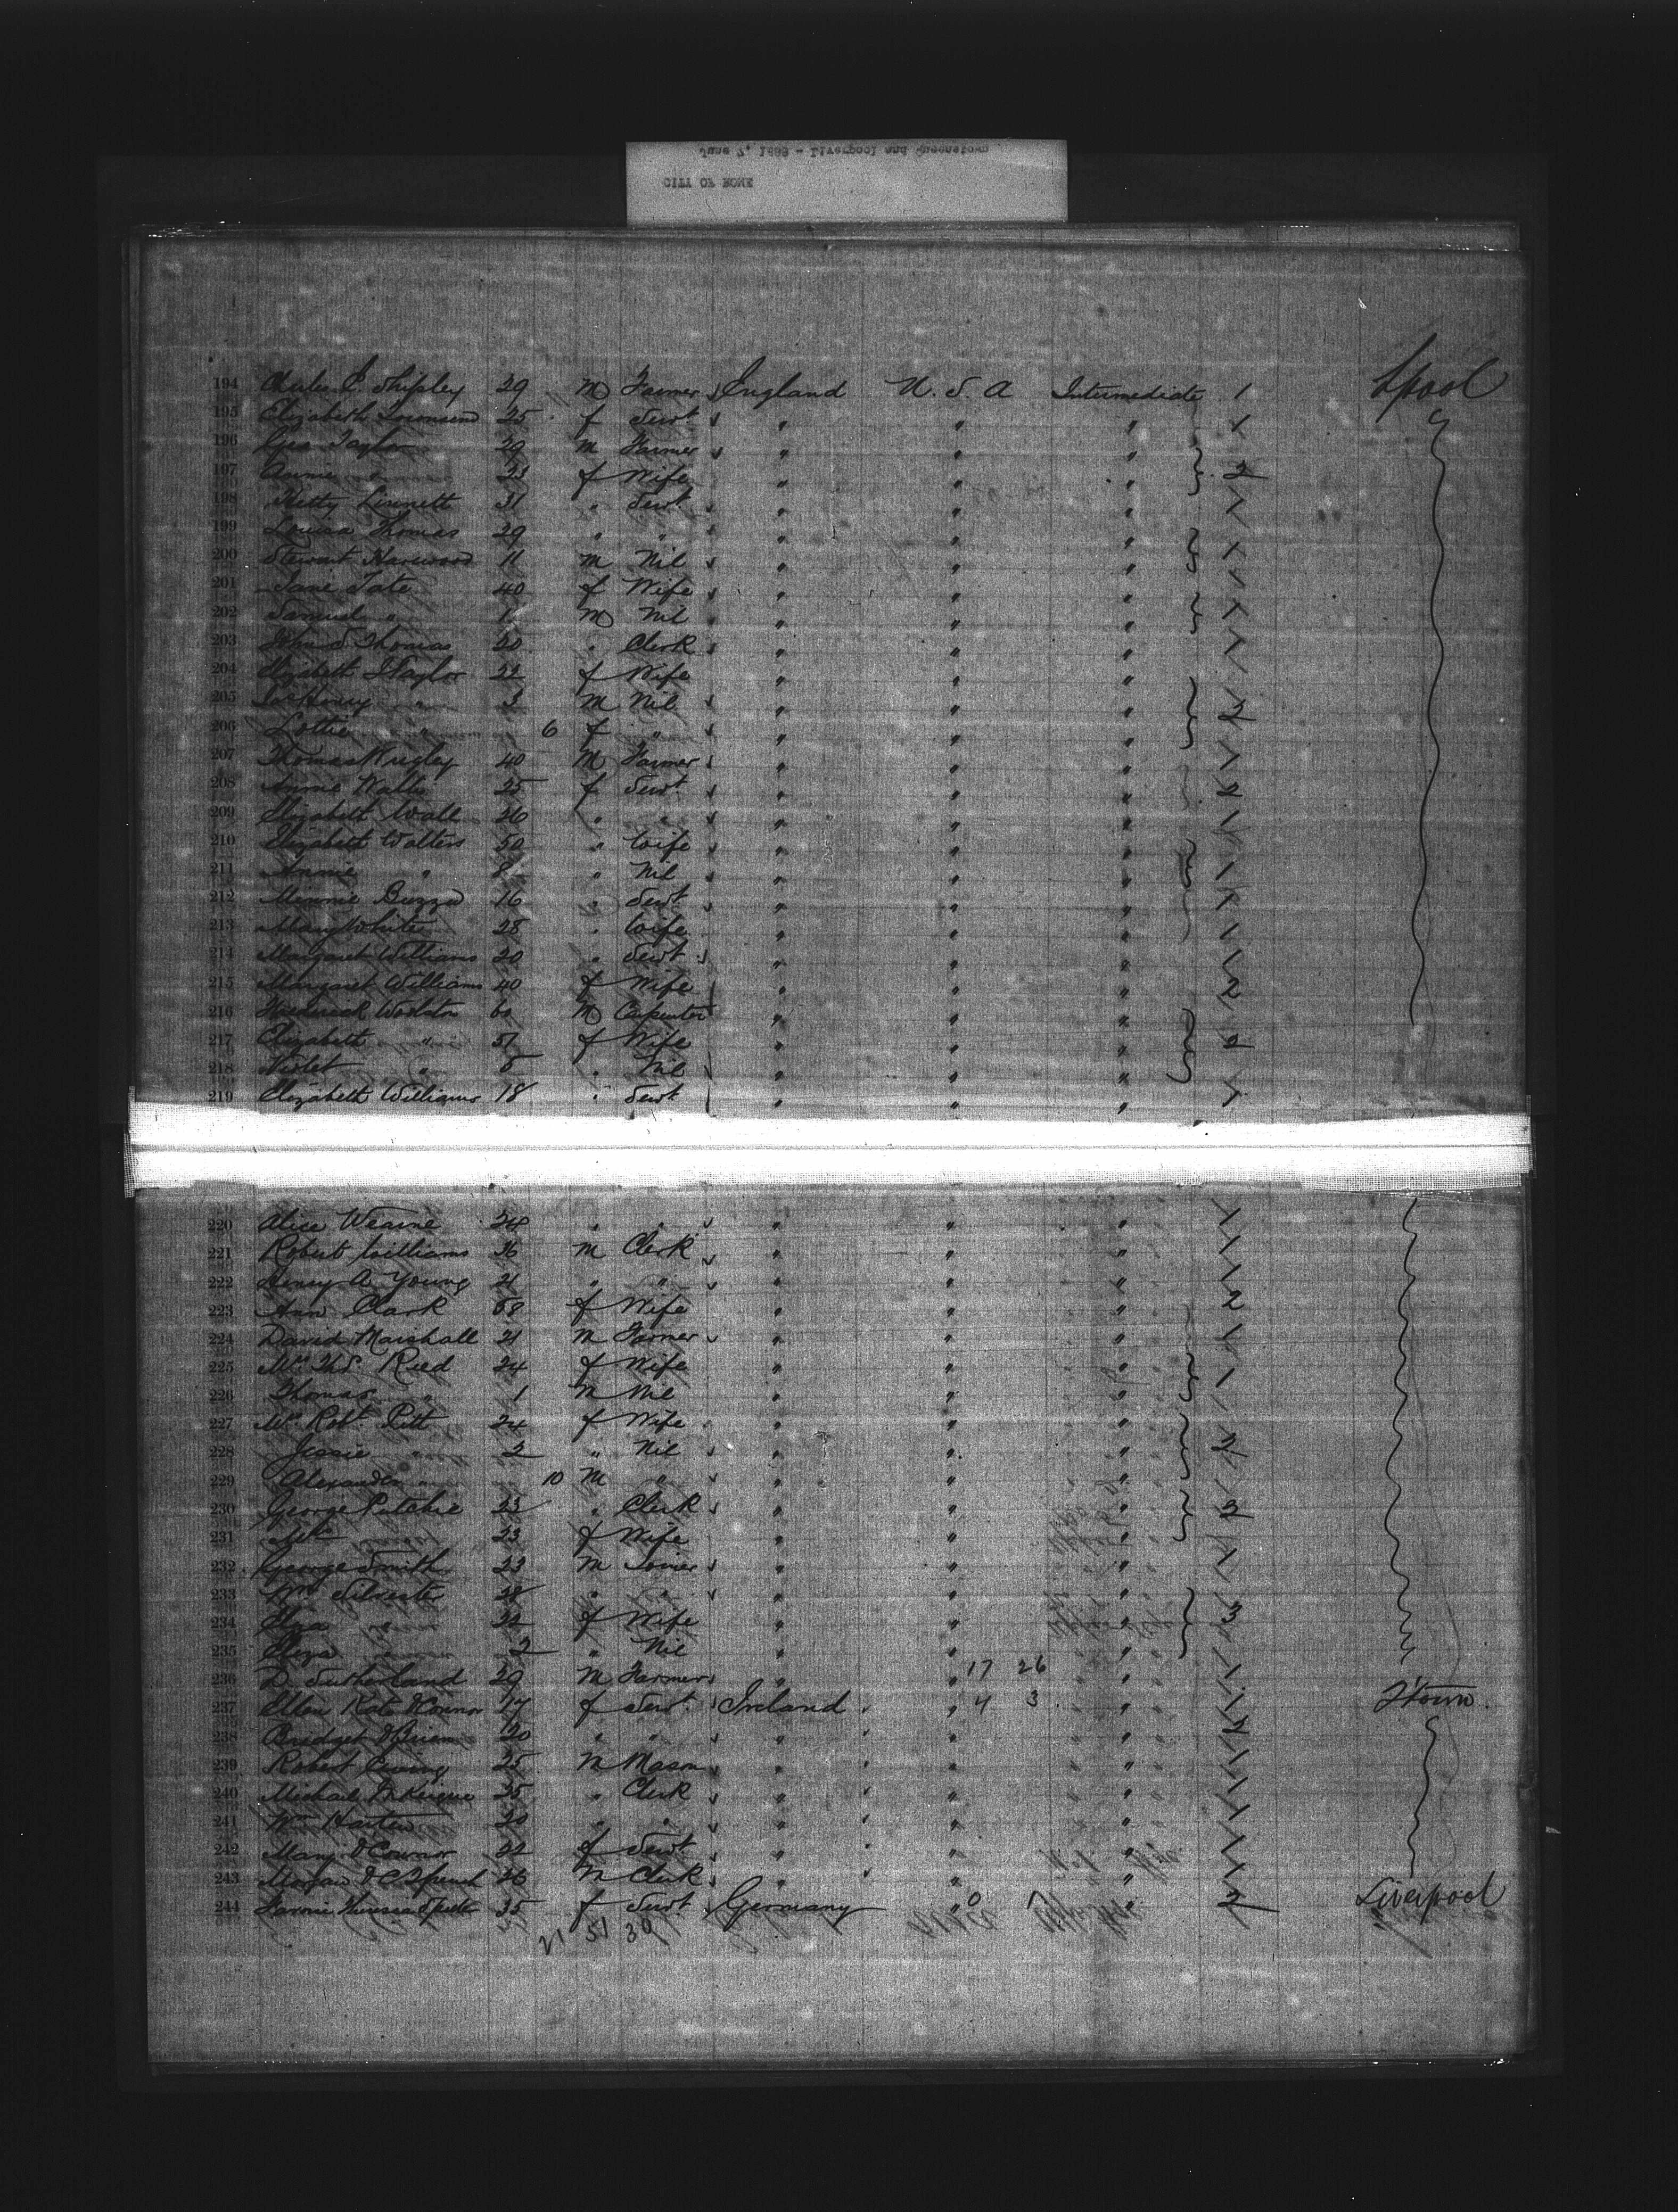 June 7, 1888 - Liverpool and Queenstown
CITY OF ROME
194 Charles E. Shipley 29 M Farmer England U.S.A Intermediate 1 Lpool
195 Elizabeth 25 f Servt " " " 1
196 Geo Taylor 29 M Farmer " " "
197 Annie " 23 f Wife " " " 2
198 Hetty Linnett 31 " Servt " " " 1
199 Louisa Thomas 29 " " " " "
200 Stewart Harwood 11 M Nil " " " 1
201 Jane Tate 40 f Wife " " " 1
202 Samuel " 1 M Nil " " " 1
203 John S. Thomas 20 " Clerk " " " 1
204 Elizabeth Taylor 22 f Wife " " "
205 Henry " 3 M Nil " " " 2
206 Lottie " 6 f " " " "
207 Thomas Wrigley 40 M Farmer " " " 1
208 Annie Wallis 25 f Servt " " " 2
209 Elizabeth Wall 26 " " " " " 1
210 Elizabeth Walters 50 " Wife " " "
211 Annie " 8 " Nil " " " 1
212 Minnie Buzza 16 " Servt " " " 1
213 Mary White 28 " Wife " " " 1
214 Margaret Williams 20 " Servt " " " 1
215 Margaret Williams 40 f Wife " " " 2
216 Frederick Woolston 60 M Carpenter " " "
217 Elizabeth " 51 f Wife " " " 2
218 Violet " 5 " Nil " " "
219 Elizabeth Williams 18 " Servt " " " 1
220 Alice Wearne 24 " " " " " 1
221 Robert Williams 36 M Clerk " " " 1
222 Henry A Young 21 " " " " " 1
223 Ann Clark 68 f Wife " " " 2
224 David Marshall 21 M Farmer " " " 1
225 Mrs Thos. Reed 24 f Wife " " " 1
226 Thomas " 1 M Nil " " "
227 Mrs Robt Pitt 24 f Wife " " "
228 Jessie " 2 " Nil " " " 2
229 Alexander " 10 M " " " "
230 George Pitchie 23 " Clerk " " " 2
231 Mrs " 23 f Wife " " "
232 George Smith 23 M Joiner " " " 1
233 Wm Silvester 28 " " " " "
234 Eliza " 22 f Wife " " " 3
235 Eliza " 2 " Nil " " "
236 D. Sutherland 29 M Farmer " " 17 26 " 1
237 Ellen Kate O'Connor 17 f Servt Ireland " 4 3 " 1 Qtown
238 Bridget O'Brien 20 " " " " " 2
239 Robert Ewing 25 M Mason " " " 1
240 Michael 35 " Clerk " " " 1
241 Wm 20 " " " " " 1
242 Mary O'Connor 22 f Servt " " " 1
243 26 M Clerk " " " 1
244 Theresa 35 f Servt Germany " 0 " 2 Liverpool
21 51 30